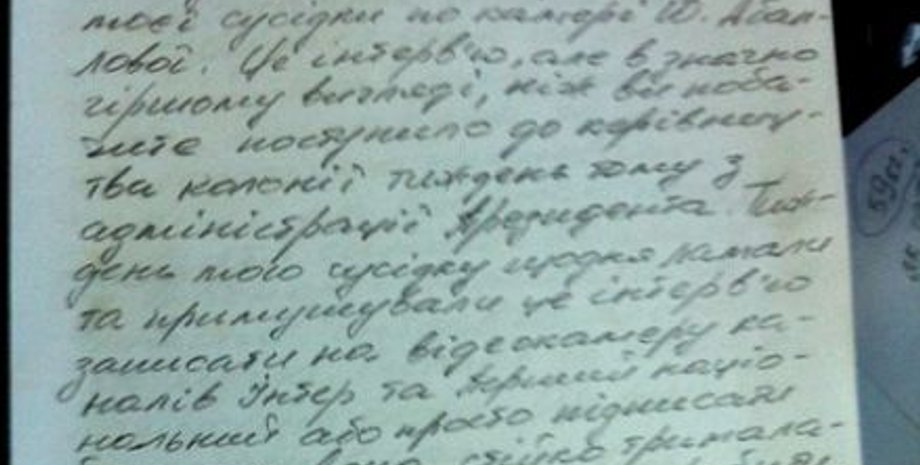 моєї сусідки по камері Ю. Абап-
лової. Це інтерв'ю, але в значно
гіршому вигляді, ніж ви поба-
чите поступило до керівниц-
тва колонії тиждень тому з
адміністрації Президента. Тиж-
день мою сусідку щодня ламали
та примушували це інтерв'ю
записати на відеокамеру ка-
налів Інтер та Перший націо-
нальний або просто підписати
стійко тримала-
59кг.